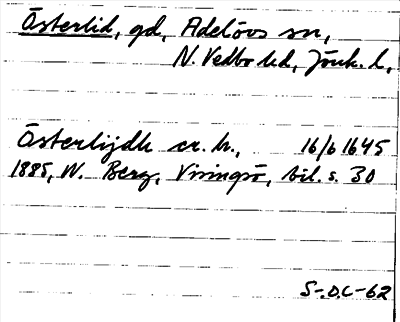 Österlid, gd, Adelövs sn,
N. Vedbo hd, Jönk. l,
Österlijdh cr. h., 16/6 1645
1885, W. Berg, Visingsö, bil. s. 30
S-.D.C-62